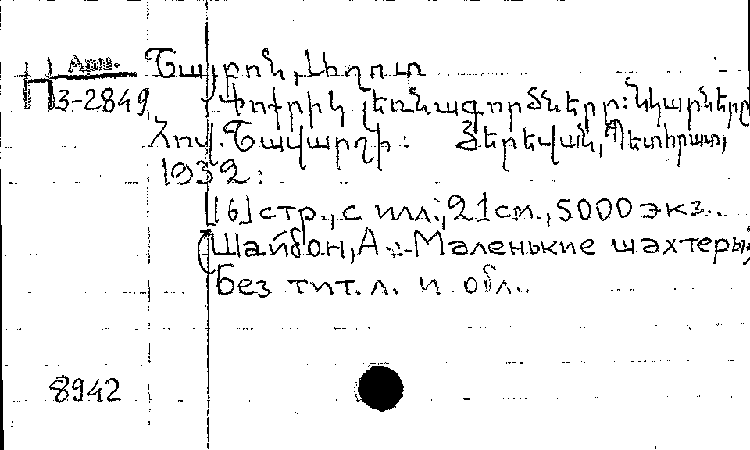 Арм.
П 3-2849
Շայբոն, Ա
Փոքրիկ լեռնագործները: Նկարները
Հով. Շավարղի: Յերեվան, Պետհրատ,
1932:
[16] стр., с илл., 21 см., 5000 экз.
(Шайбон, А. Маленькие шахтеры)
Без тит. л. и обл.
8942